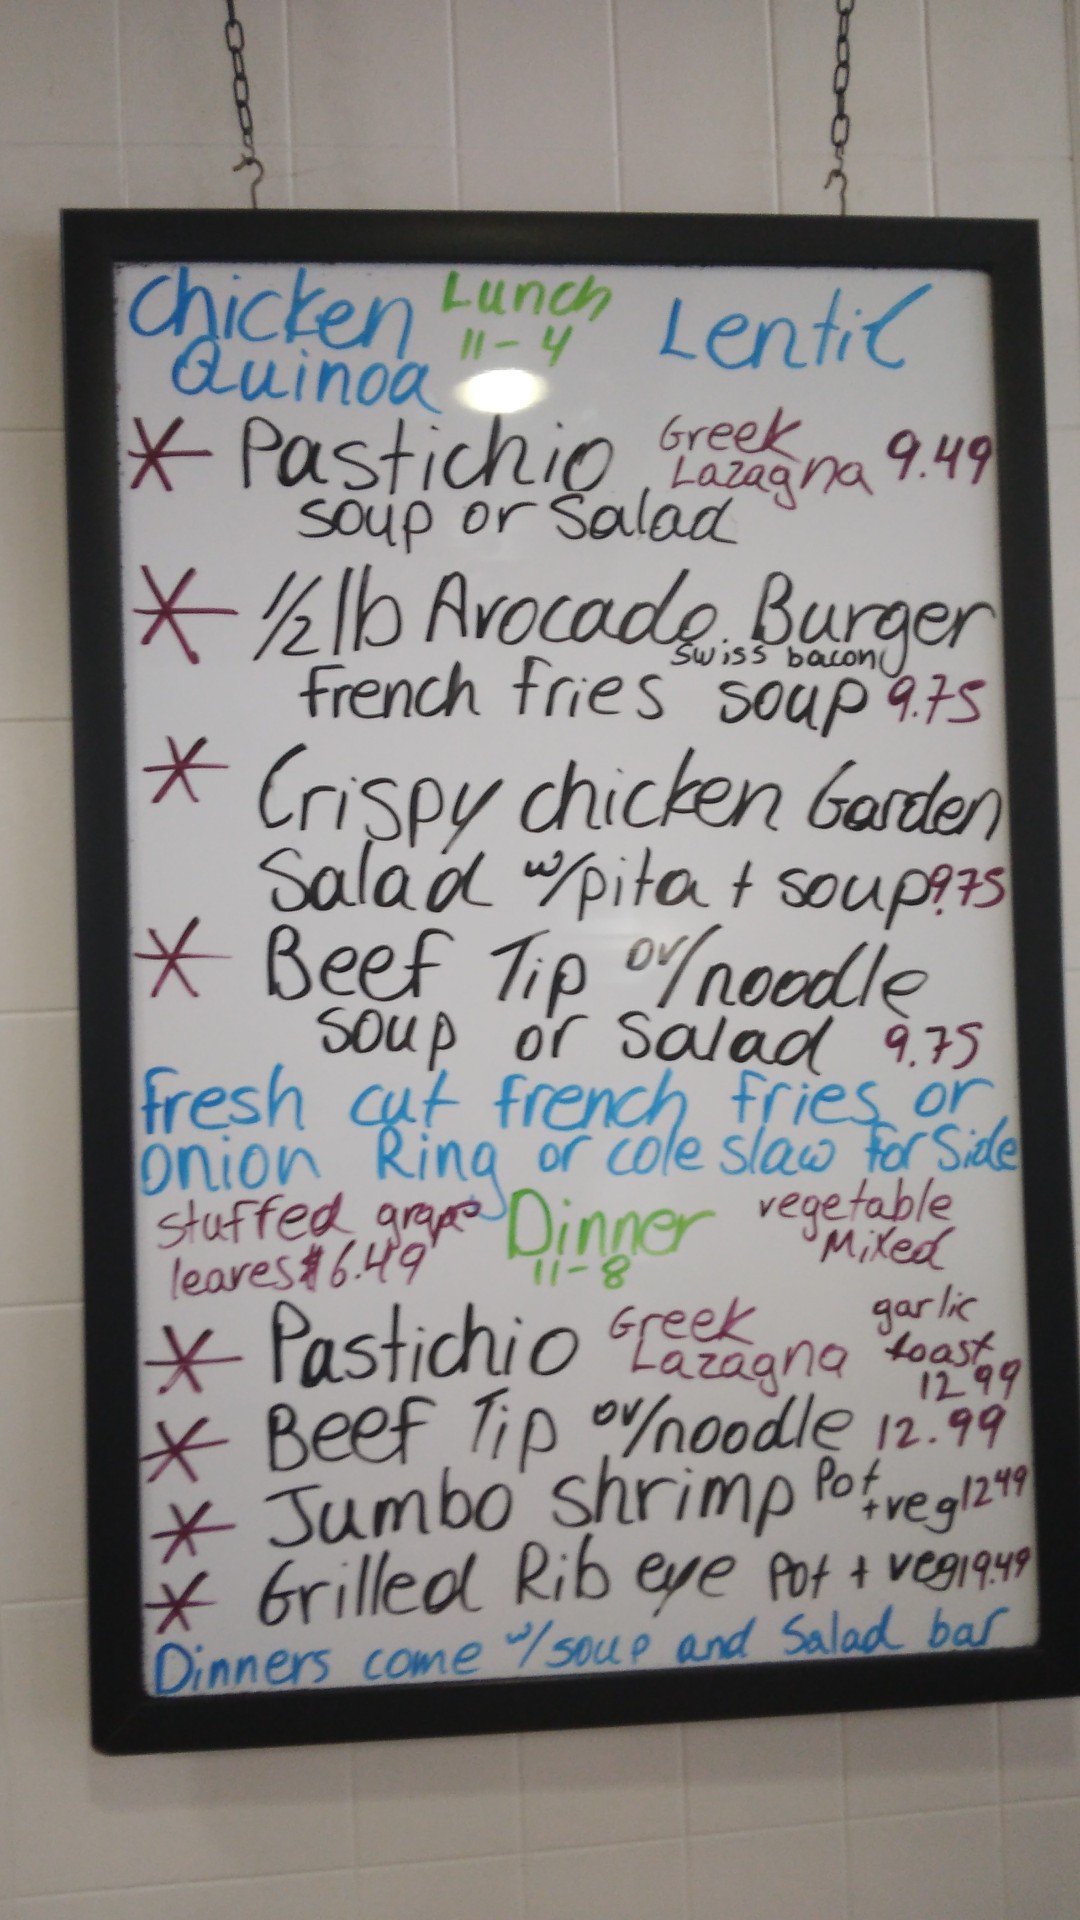 Chicken Lunch Lentil
Quinoa 11-4
* Pastichio Greek Lazagna 9.49
soup or Salad
* 1/2 lb Avocado Burger
swiss bacon
french fries soup 9.75
* Crispy chicken Garden
Salad w/pita + soup 9.75
* Beef Tip ov/noodle
soup or Salad 9.75
fresh cut french fries or
onion Ring or cole slaw for Side
stuffed grape Dinner vegetable
leaves $6.49 11-8 Mixed
* Pastichio Greek Lazagna garlic toast 12.99
* Beef Tip ov/noodle 12.99
* Jumbo shrimp Pot + veg 12 49
* Grilled Rib eye Pot + veg 19.49
Dinners come w/soup and Salad bar